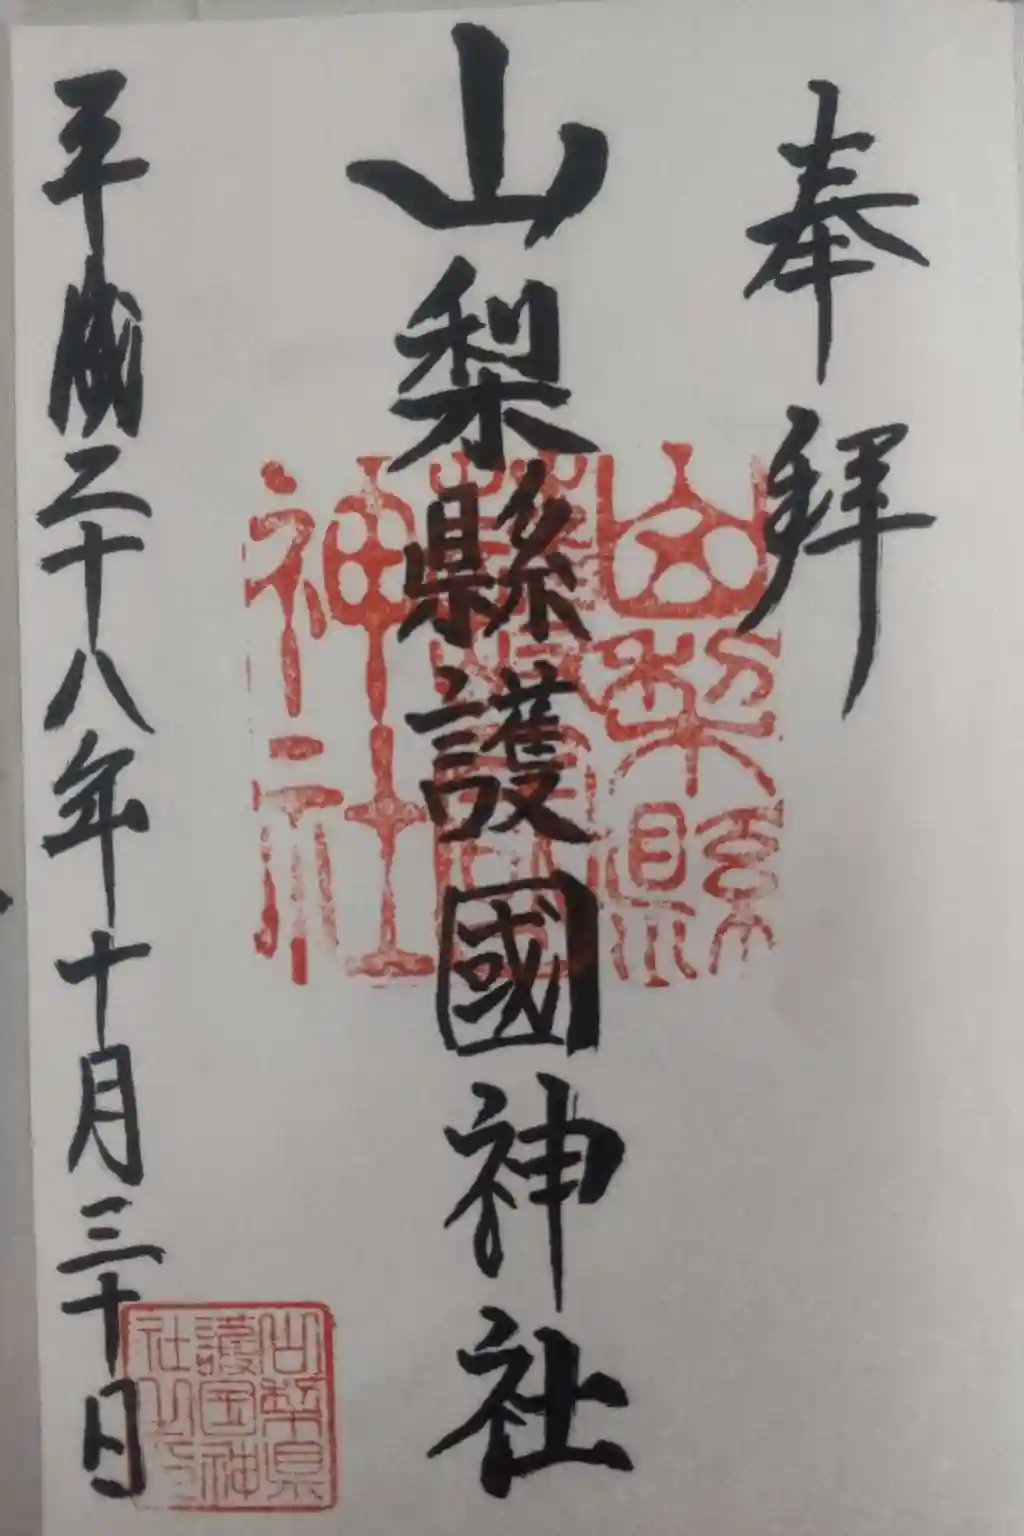 奉拜
山梨縣護國神社
平成二十八年十月三十日
山梨縣護國神社
山梨県護国神社之印